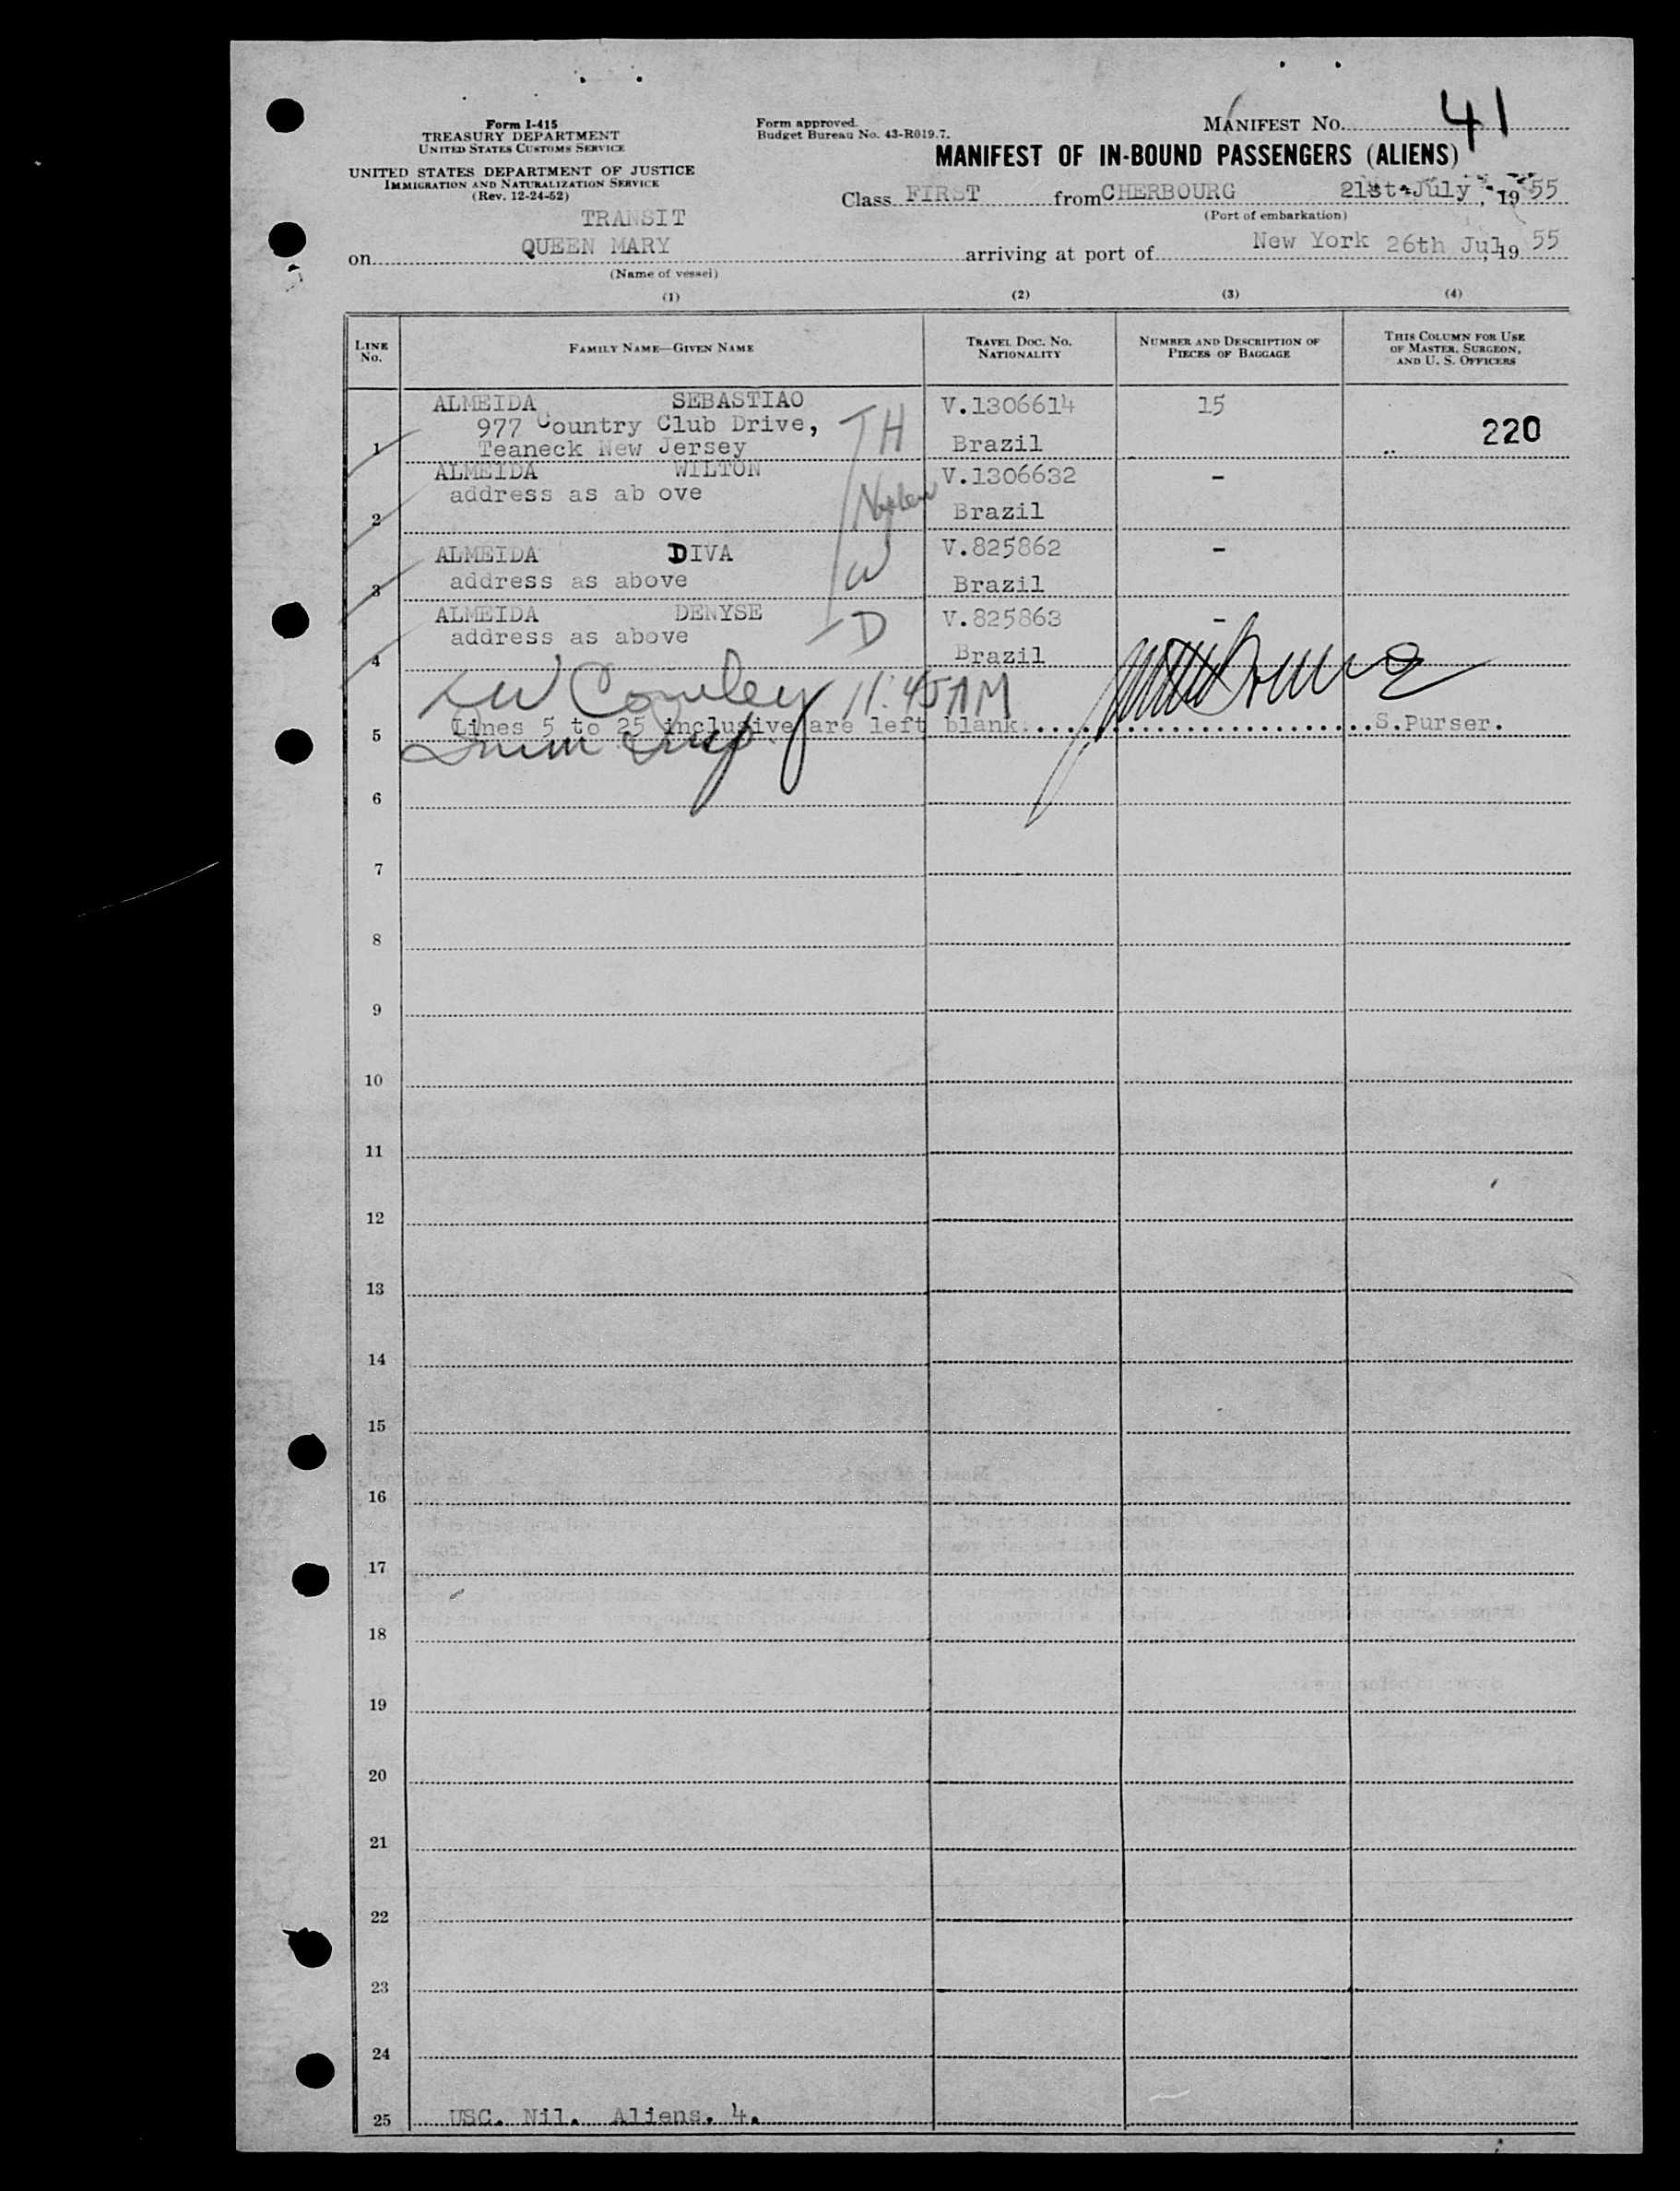 Form I-415
TREASURY DEPARTMENT
UNITED STATES CUSTOMS SERVICE
UNITED STATES DEPARTMENT OF JUSTICE
IMMIGRATION AND NATURALIZATION SERVICE
(Rev. 12-24-52)
Form approved.
Budget Bureau No. 43-R019.7.
MANIFEST NO. 41
MANIFEST OF IN-BOUND PASSENGERS (ALIENS)
Class FIRST from CHERBOURG 21st July, 19 55
(Port of embarkation)
TRANSIT
on QUEEN MARY arriving at port of New York 26th Jul, 19 55
(Name of vessel)
(1) (2) (3) (4)
LINE No. FAMILY NAME—GIVEN NAME TRAVEL DOC. NO. NATIONALITY NUMBER AND DESCRIPTION OF PIECES OF BAGGAGE THIS COLUMN FOR USE OF MASTER, SURGEON, AND U. S. OFFICERS
ALMEIDA SEBASTIAO V.1306614 15
977 Country Club Drive, TH 220
1 Teaneck New Jersey Brazil
ALMEIDA WILTON V.1306632 -
address as ab ove
2 Brazil
ALMEIDA DIVA V.825862 -
3 address as above W Brazil
ALMEIDA DENYSE V.825863 -
address as above D
4 Brazil
Cowley 11:45 AM
5 Lines 5 to 25 inclusive are left blank. S.Purser.
6
7
8
9
10
11
12
13
14
15
16
17
18
19
20
21
22
23
24
25 USC. Nil. Aliens. 4.